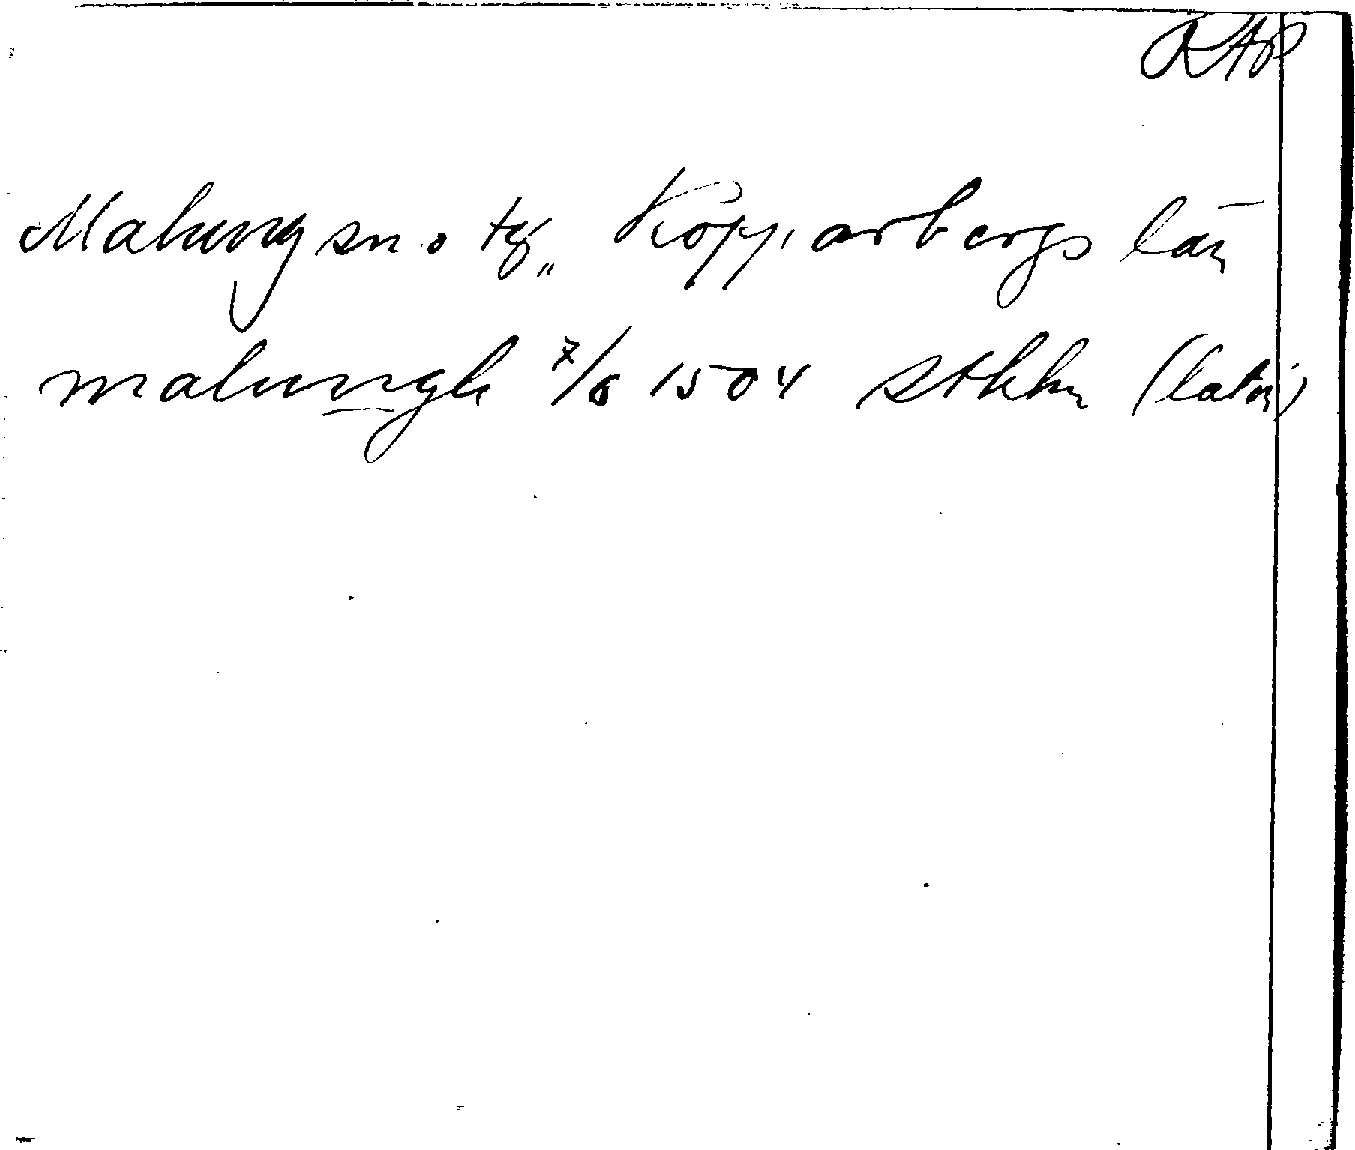 RAP
Malung sn o tg, Kopparbergs län
malungh 7/8 1504 Sthlm (latin)